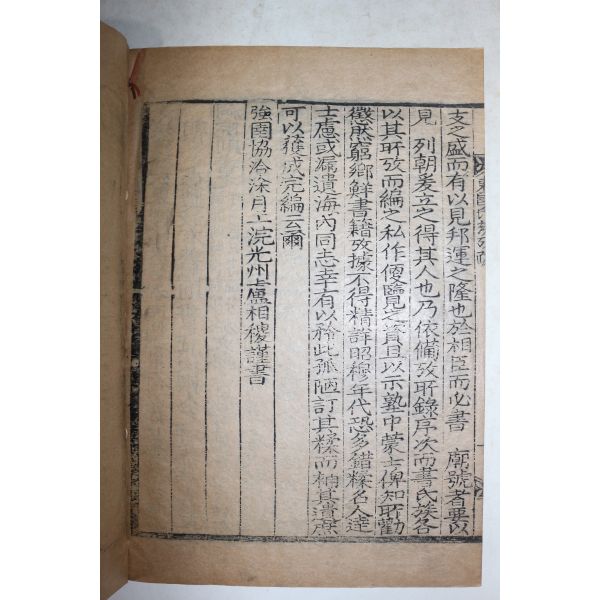 支之盛而有以見邦運之隆也於相臣而必書 廟號者要以
見 列朝爰立之得其人也乃依備攷所錄序次而書氏族各
以其所攷而編之私作便覽之資且以示塾中蒙士俾知所勸
懲然窮鄉鮮書籍攷據不得精詳昭穆年代恐多錯糅名人達
士慮或漏遺海內同志幸有以矜此孤陋訂其糅而補其遺庶
可以獲成完編云爾
強圉協洽涂月上浣光州盧相稷謹書